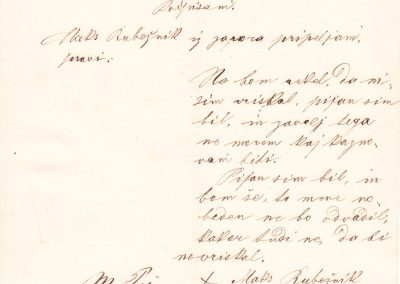 Podpisani.
Maks Rubežnik iz zapora pripeljani
pravi:
Ne bem rekel, da ni-
sim vriskal, pijan sim
bil, in zavolj tega
ne morem kaj kazno-
van biti.
Pijan sim bil, in
bom še, to mene no-
beden ne bo odvadil,
kaker tudi ne, da bi
ne vriskal.
+ Maks Rubežnik